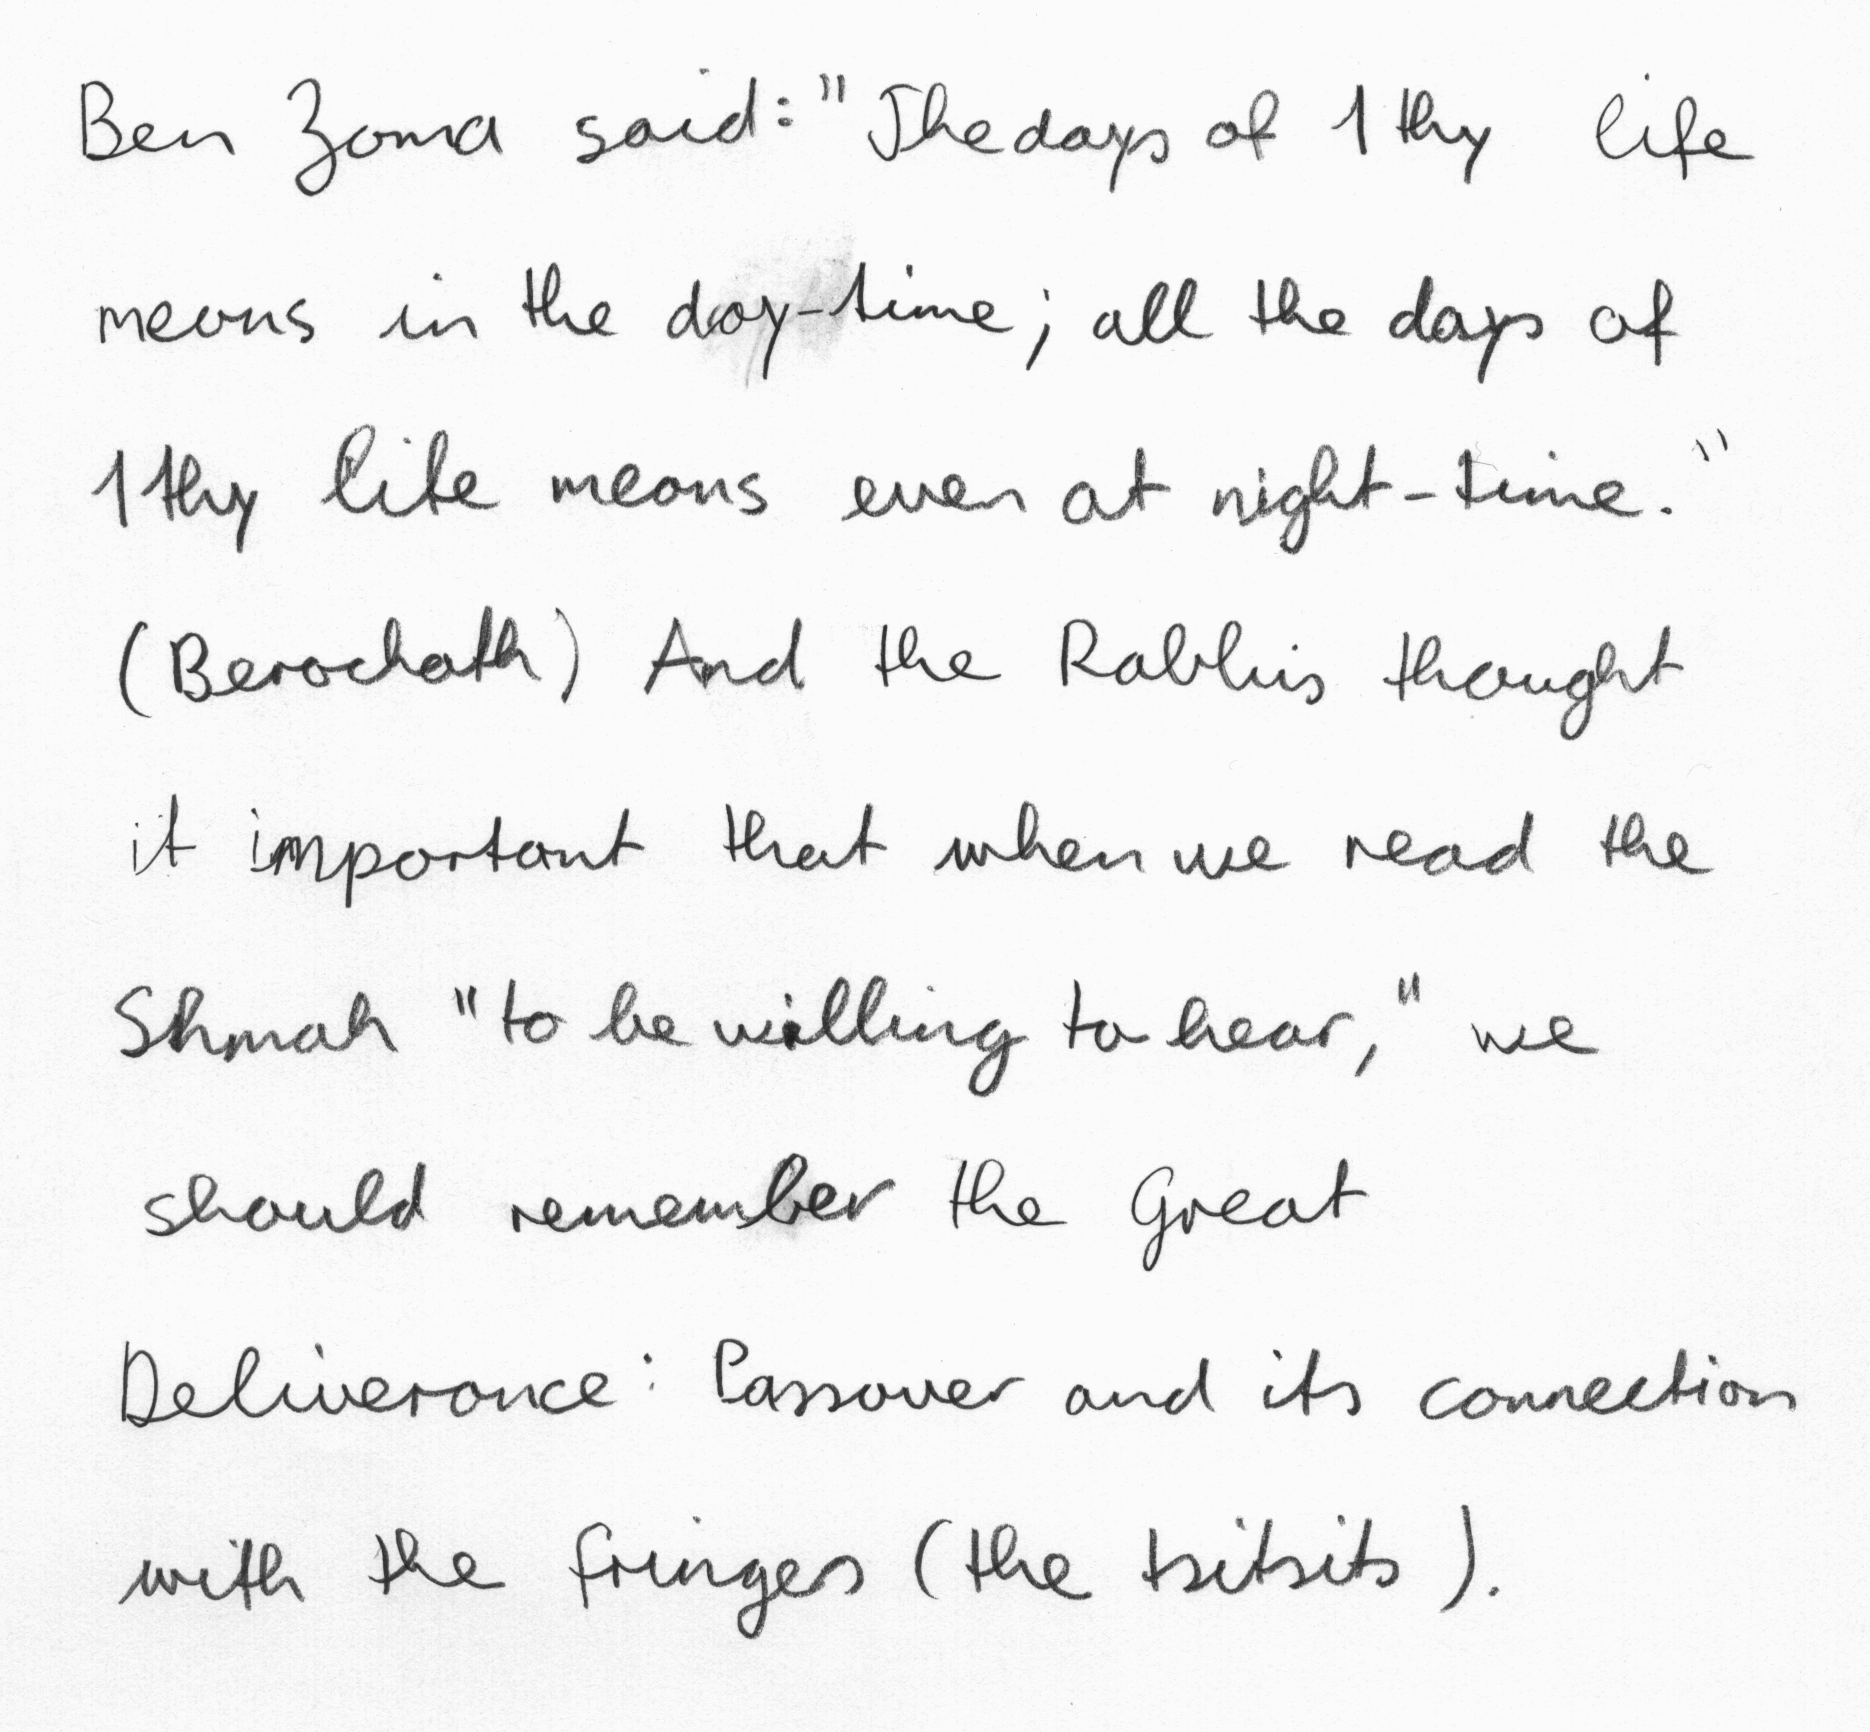 Ben Zoma said: "The days of 1 thy life
means in the day-time; all the days of
1 thy life means even at night-time."
(Berachath) And the Rabbis thought
it important that when we read the
Shmah "to be willing to hear," we
should remember the Great
Deliverance: Passover and its connection
with the fringes (the tsitsits).